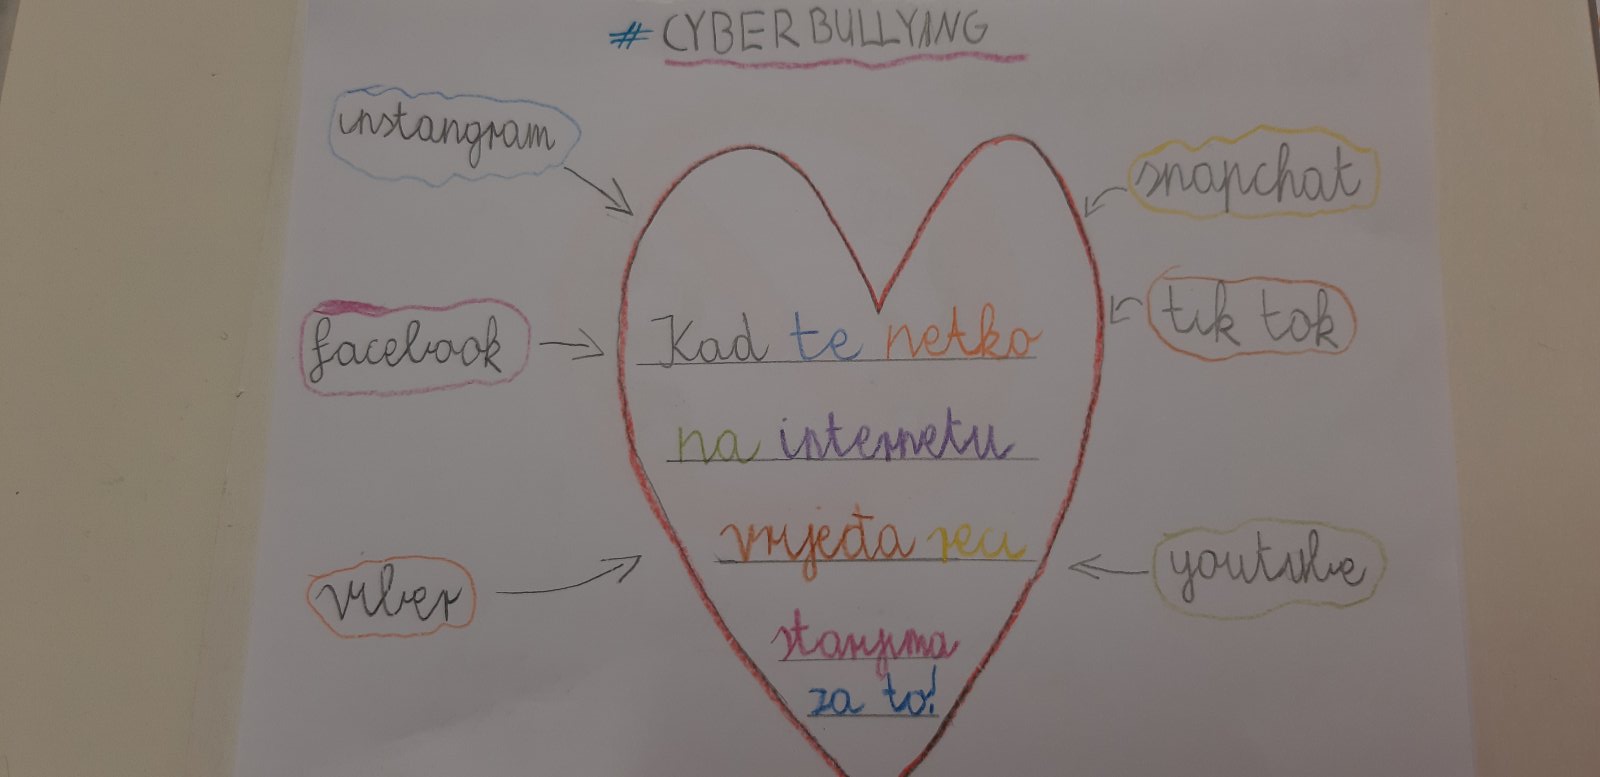 # CYBERBULLYING
instangram
facebook
viber
snapchat
tik tok
youtube
Kad te netko
na internetu
vrijeđa reci
starijima
za to!